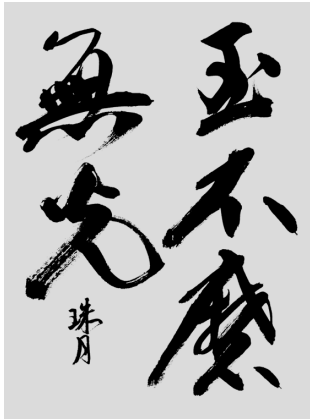 玉不磨
無光
珠月